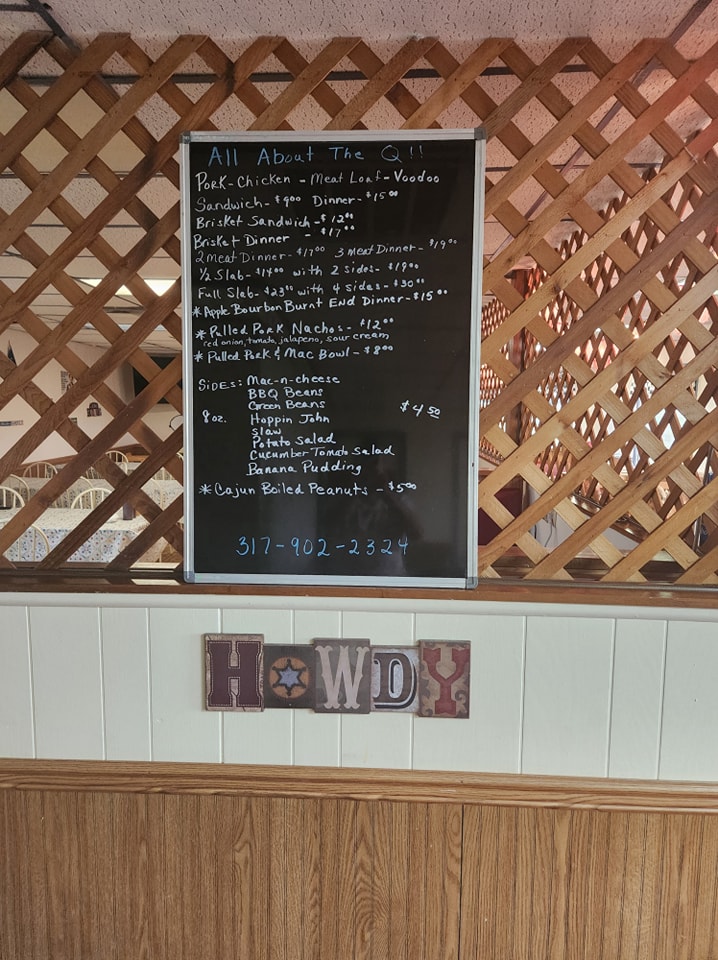 All About The Q!!
Pork-Chicken - Meat Loaf-Voodoo
Sandwich-$9.00 Dinner-$15.00
Brisket Sandwich-$12.00
Brisket Dinner - $17.00
2 Meat Dinner-$17.00 3 meat Dinner-$19.00
1/2 Slab-$14.00 with 2 sides-$19.00
Full Slab-$23.00 with 4 sides-$30.00
*Apple Bourbon Burnt End Dinner-$15.00
*Pulled Pork Nachos-$12.00
red onion, tomato, jalapeno, sour cream
*Pulled Pork & Mac Bowl-$8.00
SIDES: Mac-n-cheese
BBQ Beans
Green Beans
8 oz. Hoppin John $4.50
Slaw
Potato Salad
Cucumber Tomato Salad
Banana Pudding
*Cajun Boiled Peanuts - $5.00
317-902-2324
HOWDY